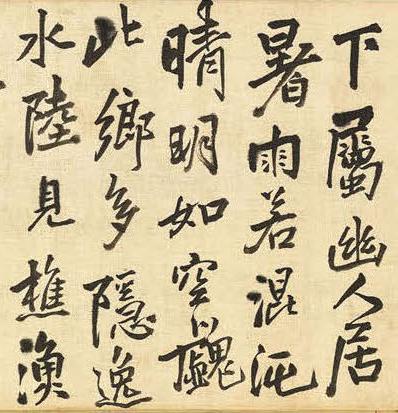 下屬幽人居
暑雨若混沌
晴明如空
此鄉多隱逸
水陸見樵漁